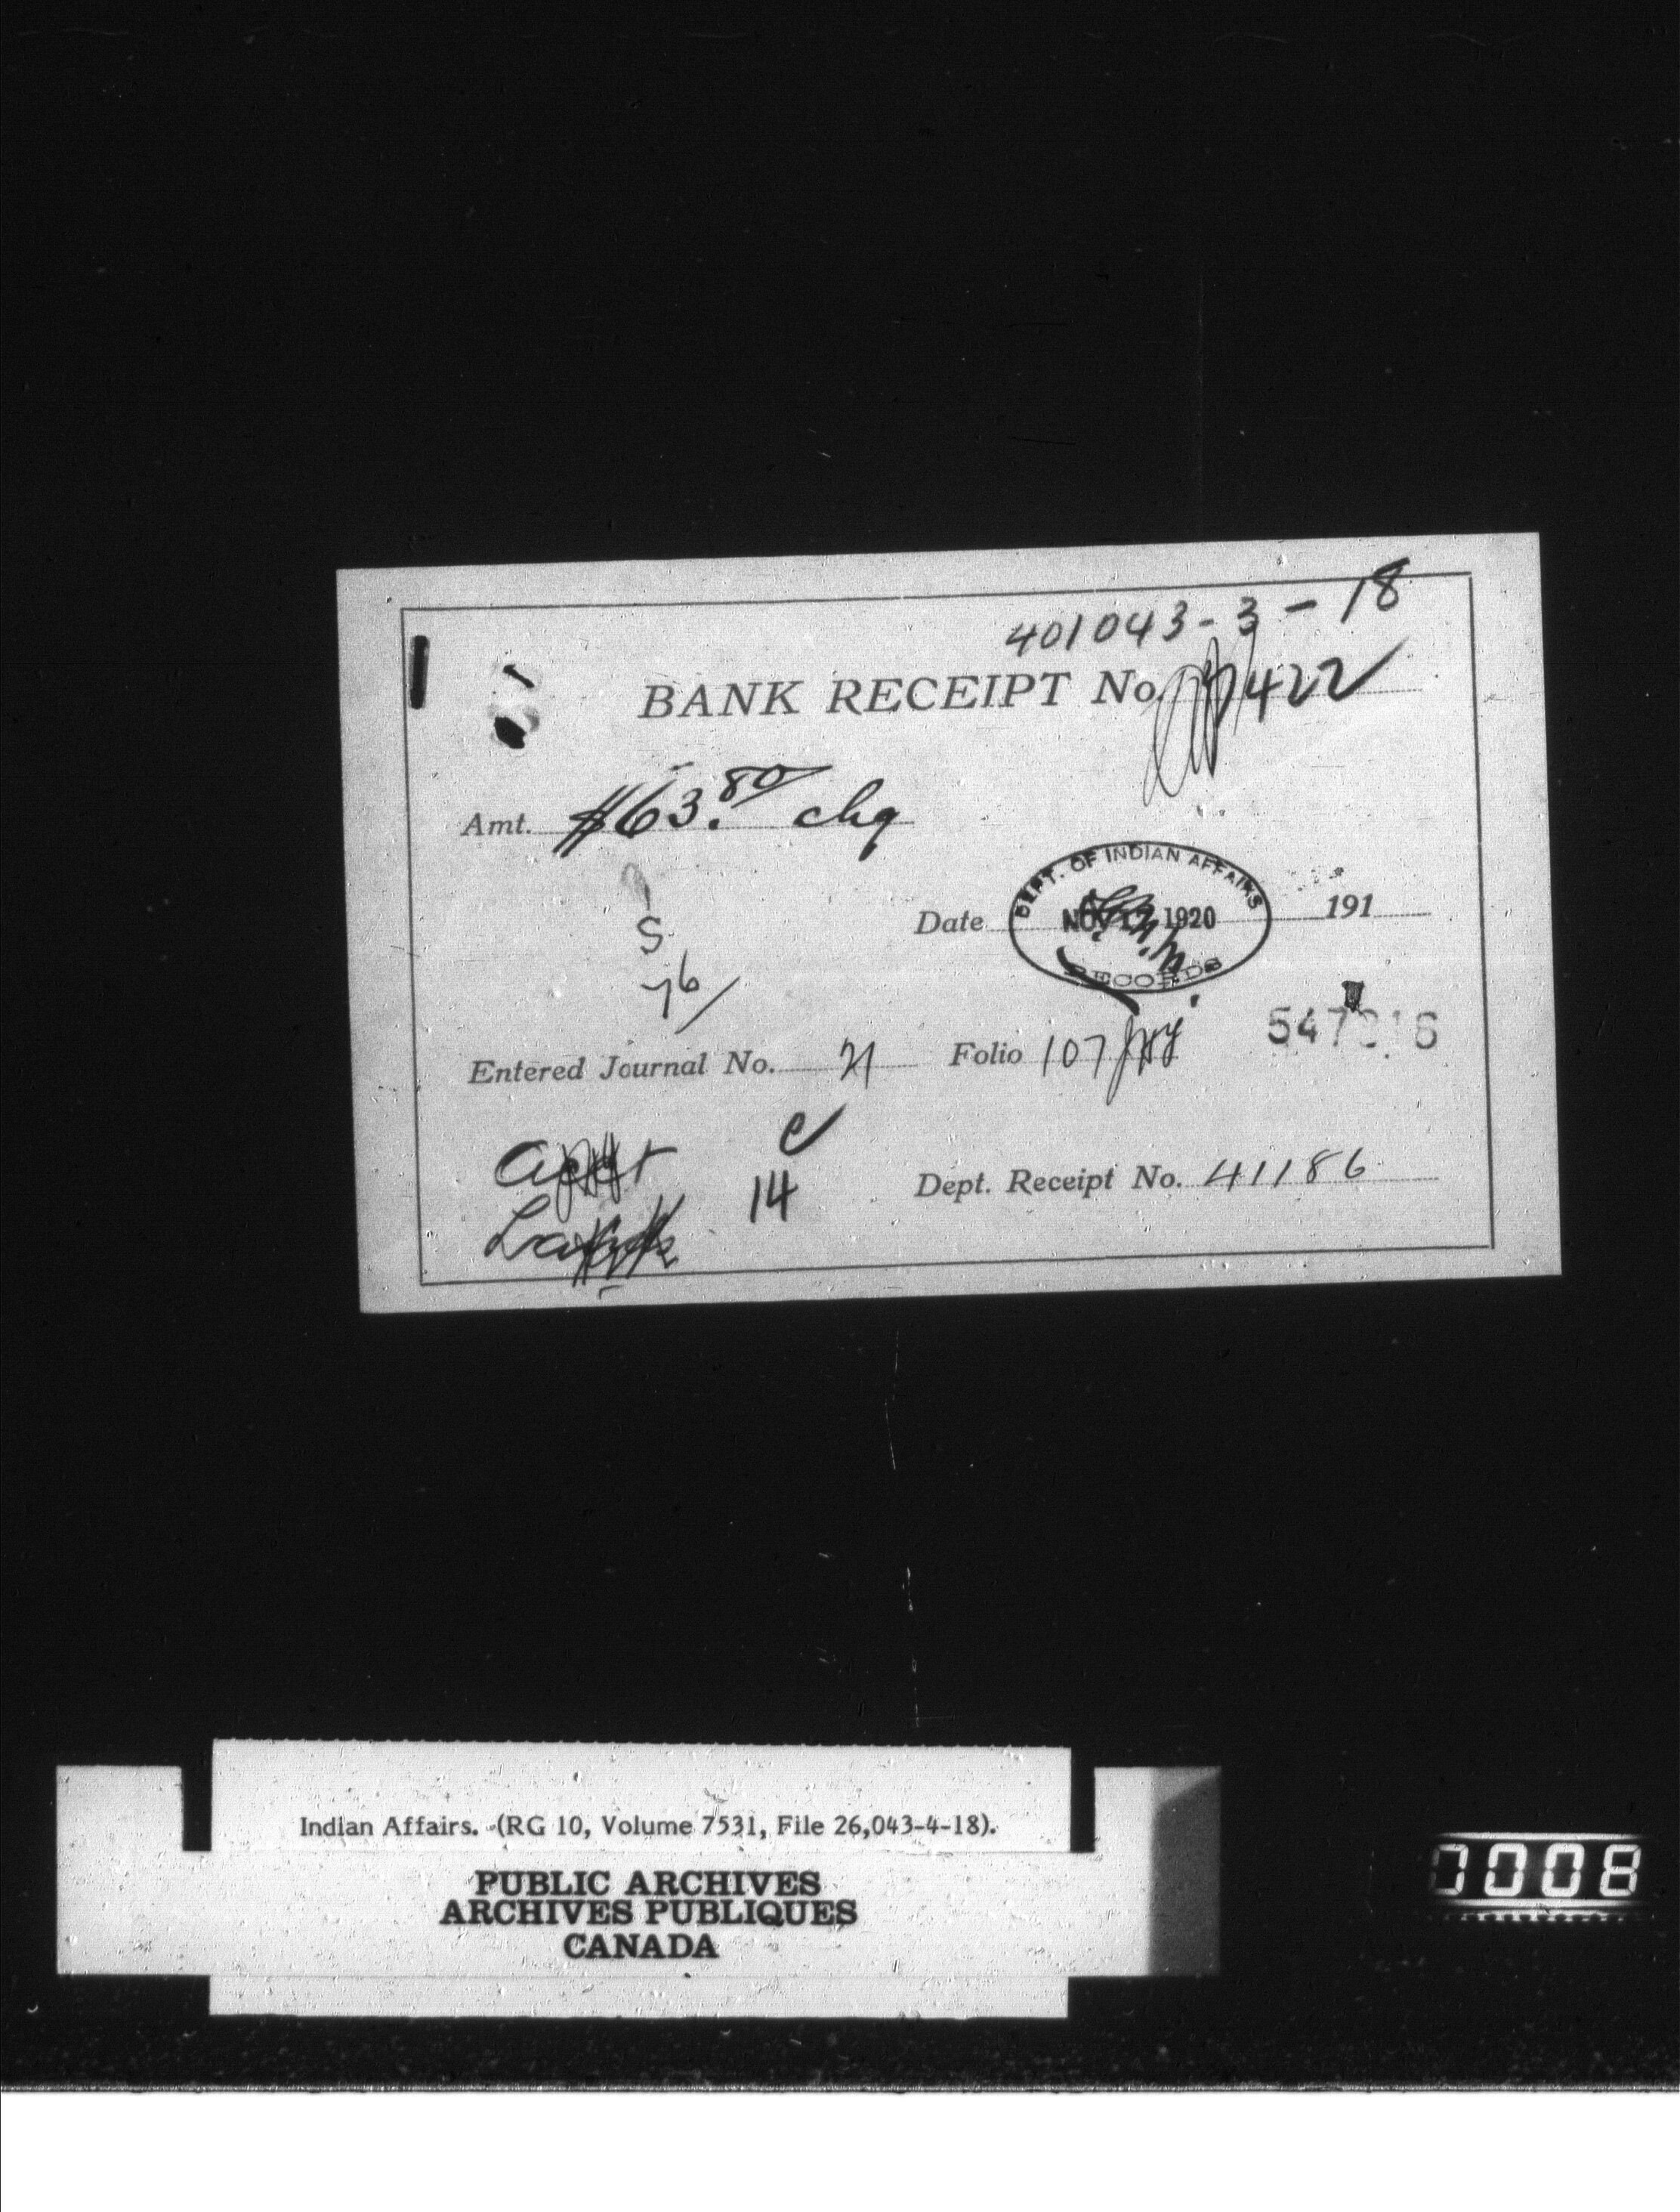 401043-3-18
BANK RECEIPT No. 422
Amt. $63.80 chq
DEPT. OF INDIAN AFFAIRS
Date NOV 12 1920 191
RECORDS
S
76
Entered Journal No. 21 Folio 107
C
14
Dept. Receipt No. 41186
Indian Affairs. (RG 10, Volume 7531, File 26,043-4-18).
PUBLIC ARCHIVES
ARCHIVES PUBLIQUES
CANADA
0008